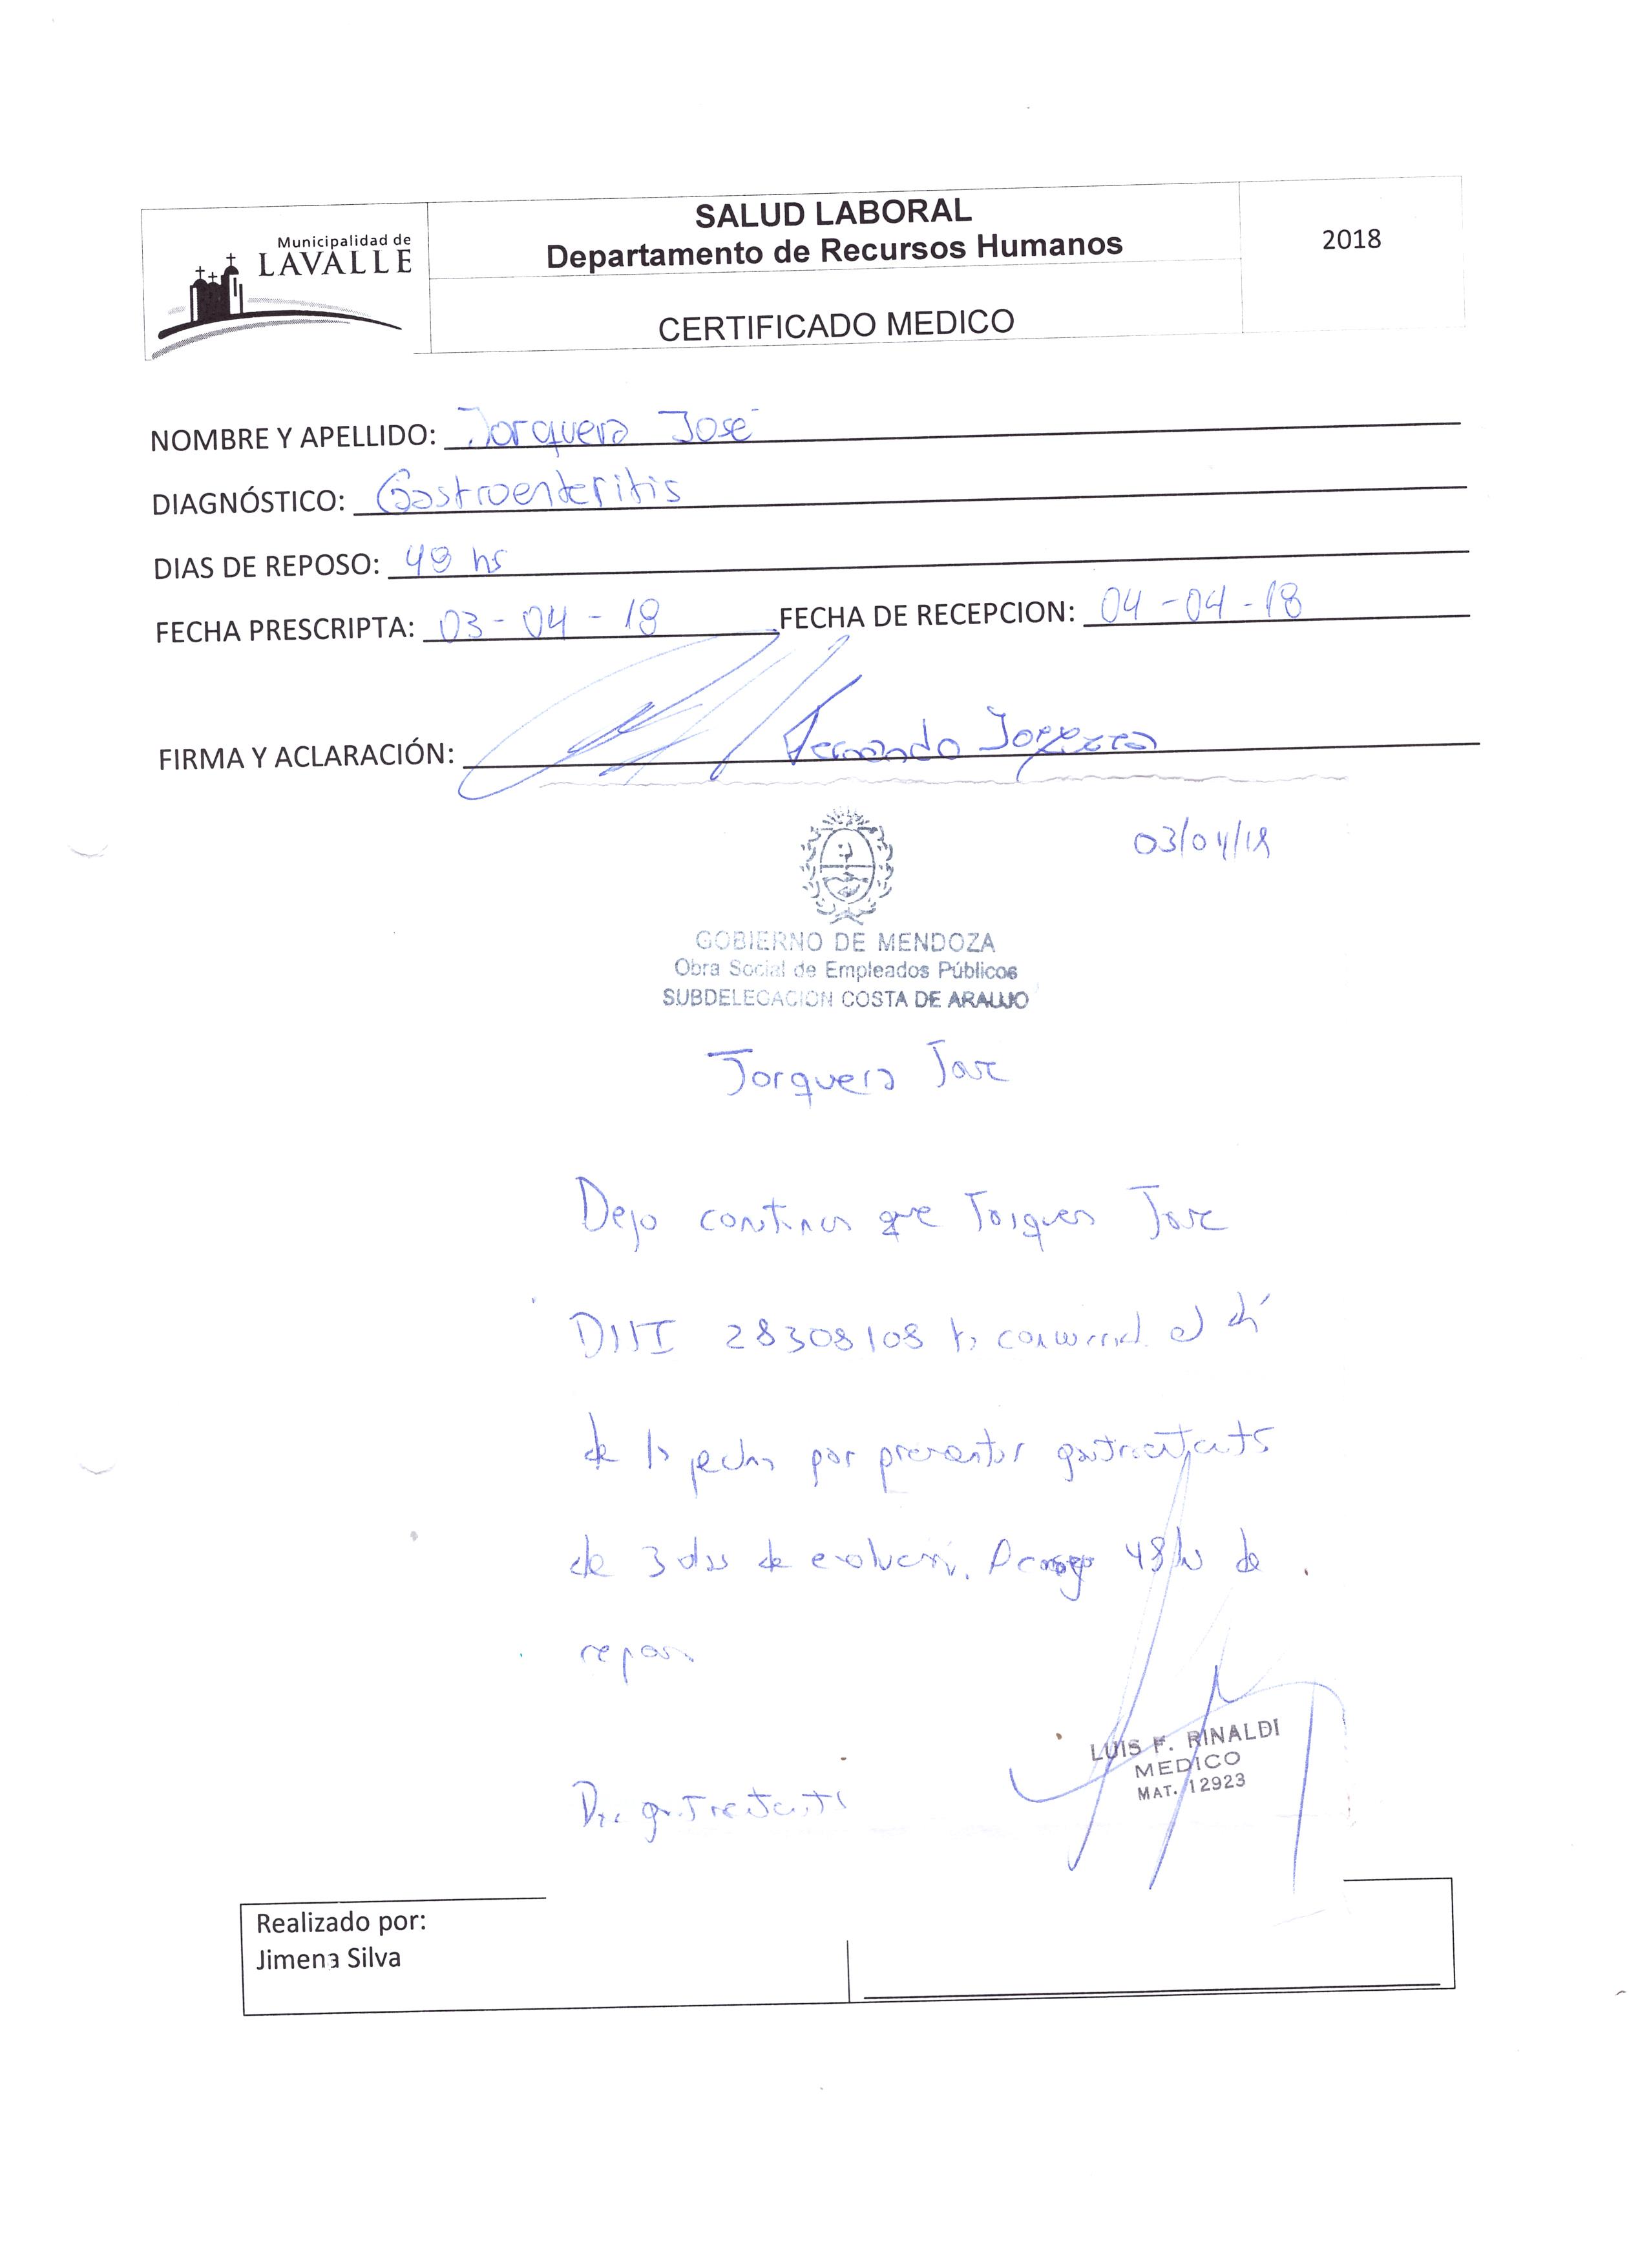 Municipalidad de
LAVALLE
SALUD LABORAL
Departamento de Recursos Humanos
2018
CERTIFICADO MEDICO
NOMBRE Y APELLIDO: Jorquera José
DIAGNÓSTICO: Gastroenteritis
DIAS DE REPOSO: 48 hs
FECHA PRESCRIPTA: 03-04-18 FECHA DE RECEPCION: 04-04-18
FIRMA Y ACLARACIÓN: Fernando
03/04/18
GOBIERNO DE MENDOZA
Obra Social de Empleados Públicos
SUBDELEGACION COSTA DE ARAUJO
Jorquera Jose
Dejo que Jose
DNI 28308108 el
de la fecha por presentar
de 3 dias de evolucion. 48 hs de
reposo
LUIS F. RINALDI
MEDICO
MAT. 12923
Realizado por:
Jimena Silva